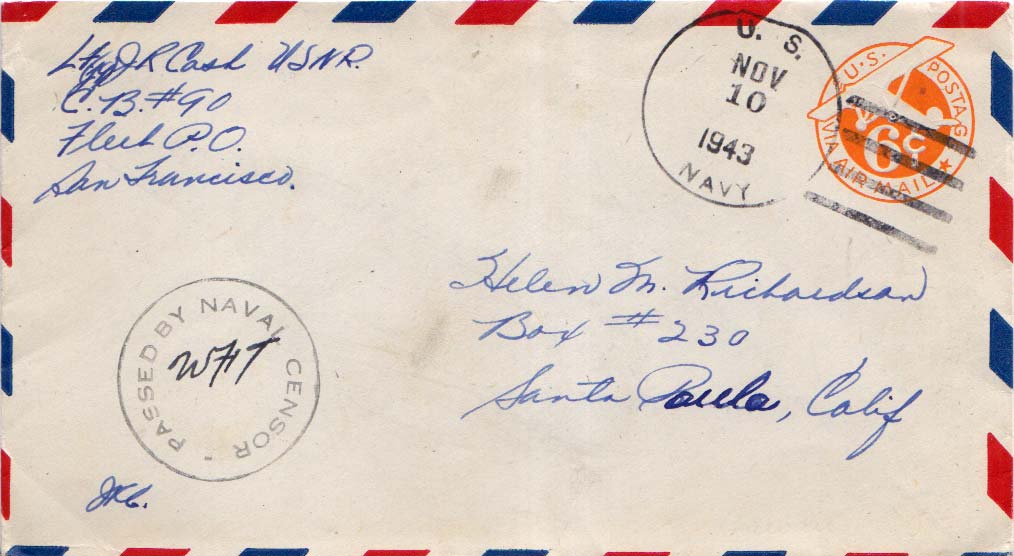 Lt(jg) J R Cash USNR.
C.B. #90
Fleet P.O.
San Francisco.
U. S.
NOV
10
1943
NAVY
U.S. POSTAG
6c
VIA AIR MAIL
Helen M. Richardson
Box #230
Santa Paula, Calif
PASSED BY NAVAL CENSOR
WHT
JRC.